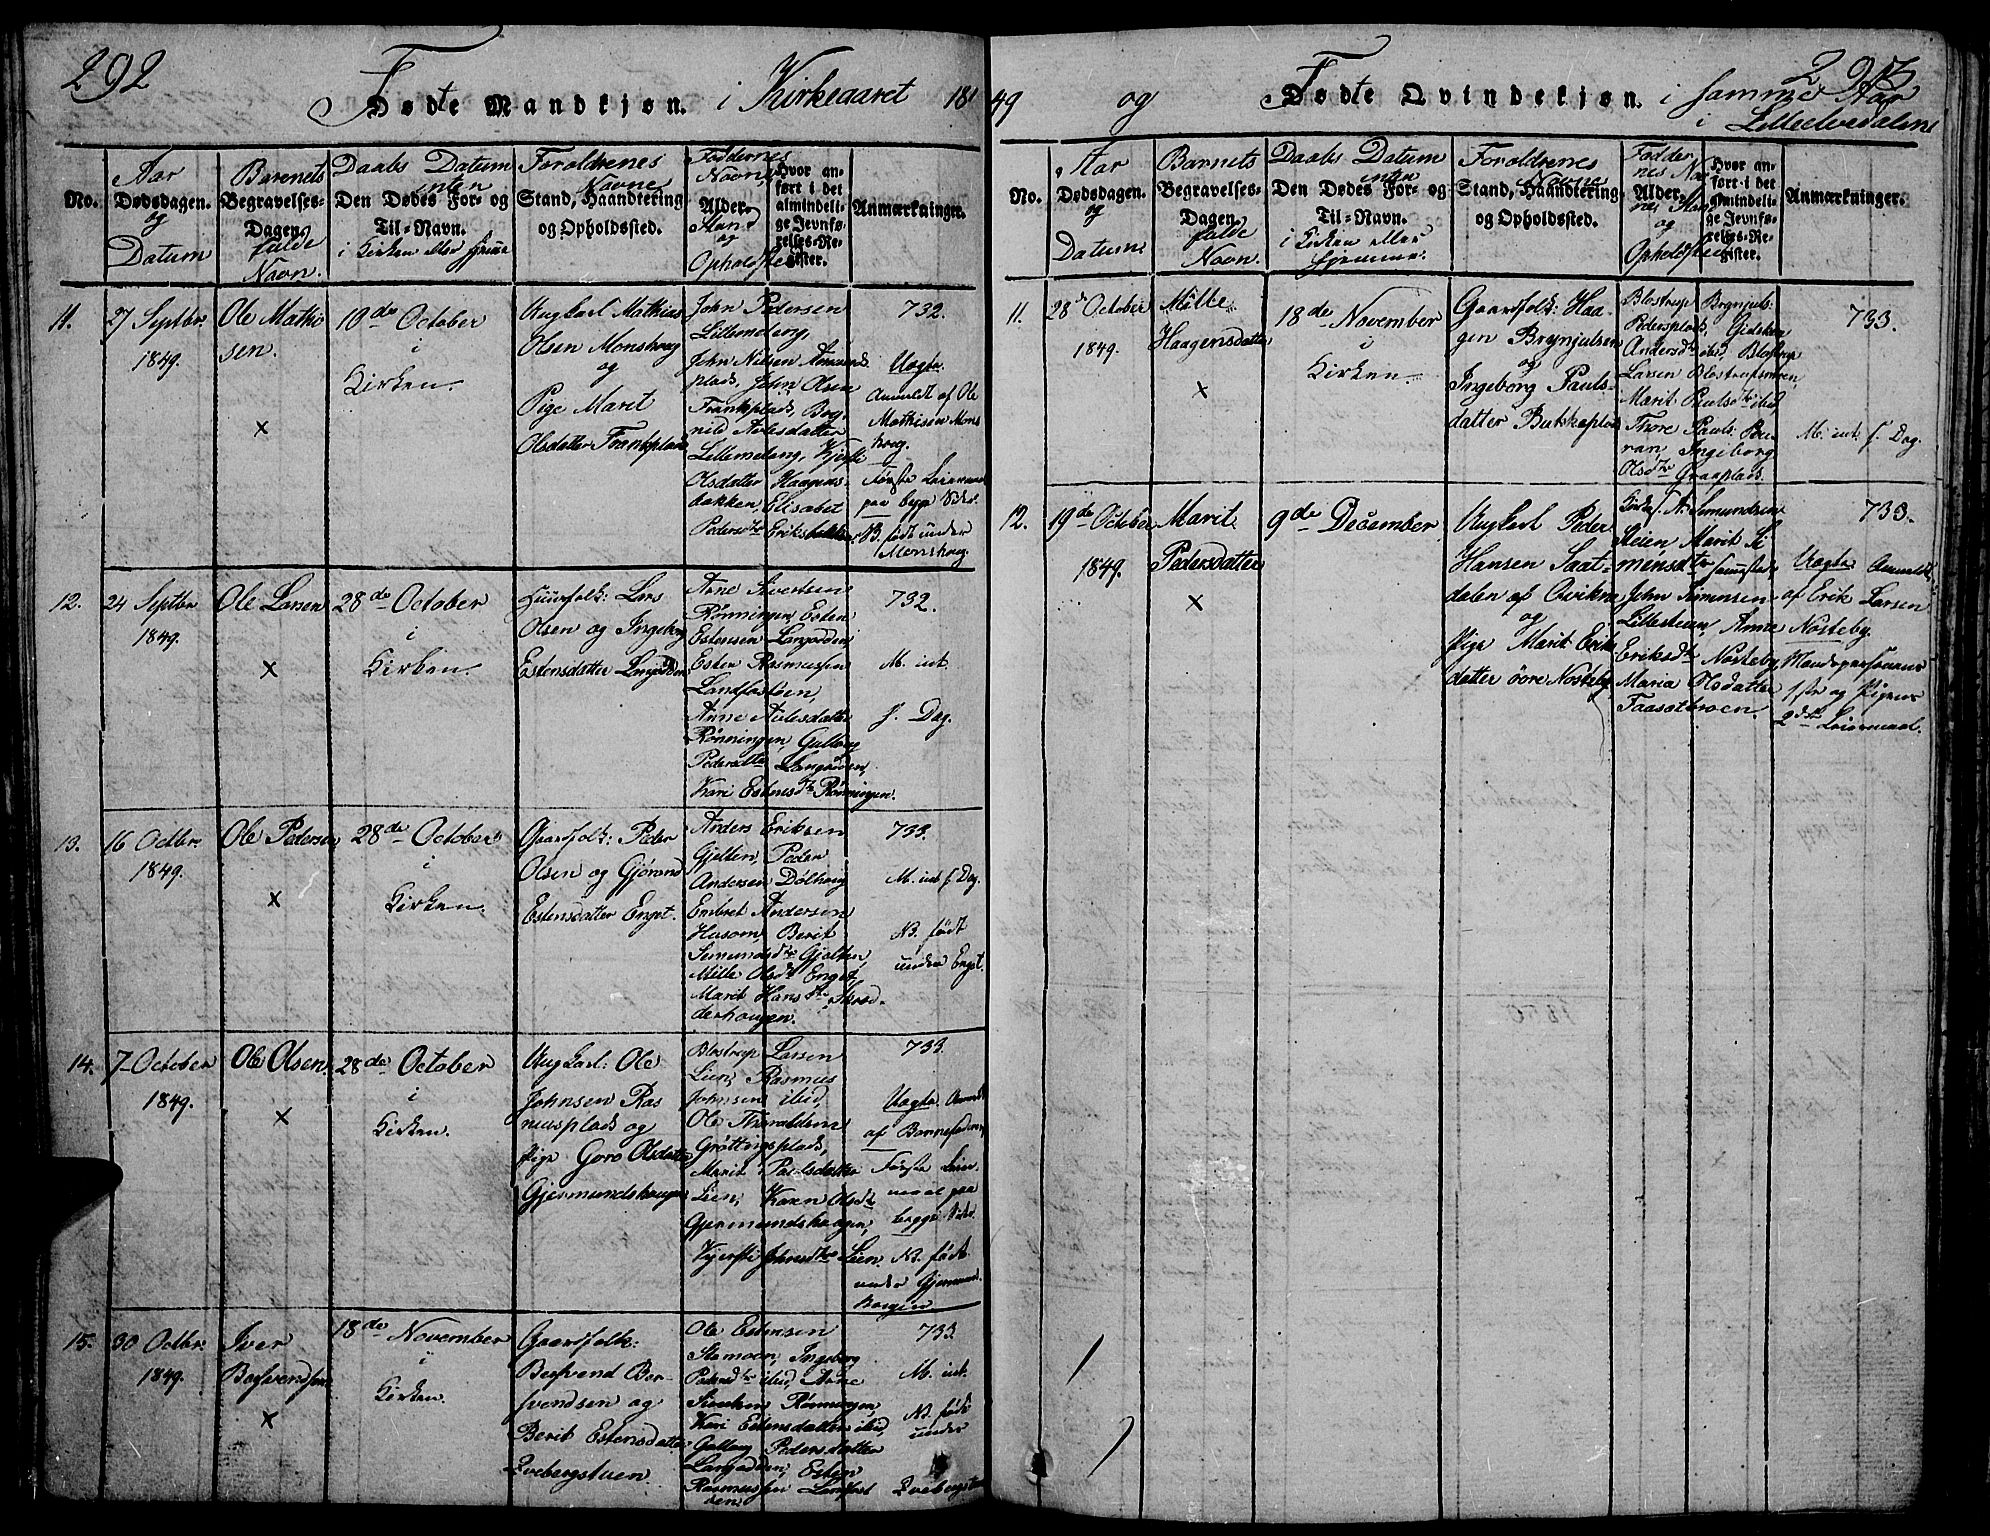 292
Födte Mandkjøn. i Kirkeaaret 18
No.
Aar
Dødsdagen.
og
Datum
Barnets
Begravelses-
Dagen.
fulde
Navn.
Daabs Datum
enten
Den Dødes For- og
Til-Navn.
i Kirken eller hjemme
Foreldrenes
Navne
Stand, Haandtering
og Opholdssted.
Faddernes
Navne,
Alder.
Stand
og
Opholdsted
Hvor an-
ført i det
almindeli-
ge Jevnfø-
relses-Re-
gister.
Anmærkninger.
11.
27 Septbr.
1849.
Ole Mathi
sen.
×
10de October
i
Kirken.
Ungkarl Mathias
Olsen Monshoug
og
Pige Marit
Olsdatter Trønsplads
John Pedersen
Lillemoeng,
John Nilsen Amunds
plads, John Olsen
Trønsplads, Bog-
nild Avlesdatter
Lillemoeng, Kjersti
Olsdatter Haagens-
bakken Elisabet
Pedersdtr Eriksbakken.
732.
Uægte
Anmeldt af Ole
Mathisen Mons
houg.
Første Leiermaal
paa begge Sider.
NB. født under
Monshoug.
12.
24 Septbr
1849.
Ole Larsen
×
28de October
i
Kirken.
Huusfolk: Lars
Olsen og Ingeborg
Estensdatter Langødden
Arne Sivertsen
Rønningen, Esten
Estensen Langødden
Esten Rasmussen
Landfastøen,
Anne Avlesdatter
Rønningen, Gullaug
Pedersdtr Langødden,
Kari Estensdtr Rønningen.
732.
M. int.
f. Dag.
13.
16 Octbr.
1849.
Ole Pedersen
×
28de October
i
Kirken.
Gaardfolk: Peder
Olsen og Gjørond
Estensdatter Enget.
Anders Eriksen
Gjelten, Peder
Andersen Dølhoug
Embret Andersen
Husom, Berit
Semundsdtr Gjelten,
Mille Olsdtr Enget,
Marit Hansdtr Skræd-
derhougen.
733.
M. int. f. Dag.
NB. født
under Enget.
14.
7 October
1849.
Ole Olsen.
×
28de October
i
Kirken.
Ungkarl: Ole
Johnsen Ras
musplads og
Pige Goro Olsdatter
Gjermundshougen
Blostrup Larsen
Lien, Rasmus
Johnsen ibid,
Ole Thoraldsen
Grøttingsplads,
Marit Paulsdatter
Lien, Karen Olsdtr
Gjermundshougen,
Kjersti Johnsdtr Lien.
733.
Uægte Anmeldt
af Barnefaderen
Første Leier-
maal paa
begge Sider.
NB. født
under Gjermund
hougen
15.
30 Octbr.
1849.
Iver
Bersvendsen
×
18de November
i
Kirken.
Gaardfolk:
Bersvend Ber-
svendsen og
Berit Estensdatter
Qvebergstuen.
Ole Estensen
Stemoen, Ingeborg
Pedersdtr ibid, Arne
Rønningen,
Kari Estensdatter ibid,
Gullaug Pedersdatter
Langødden, Esten
Rasmussen Landfast
øden
733.
M. int.
NB. født
under
Qvebergstuen
49 og Fødte Qvindekjøn. i samme Aar
i Lilleelvedalen
293
No.
Aar
Dødsdagen.
og
Datum.
Barnets
Begravelses-
Dagen.
fulde
Navn.
Daabs Datum
enten
Den Dødes For- og
Til-Navn.
i Kirken eller
hjemme.
Foreldrenes
Navne
Stand, Haandtering
og Opholdssted.
Fadder
nes Nav
Alder.
ne, Stand
og
Opholdsted
Hvor an-
ført i det
almindeli-
ge Jevnfø-
relses-Re-
gister.
Anmærkninger.
11.
28de October
1849.
Mille
Haagensdatter
×
18de November
i
Kirken.
Gaardfolk: Haa-
gen Brynjulsen
og
Ingeborg Pauls-
datter Butskoplads
Blostrup Brynjuls.
Pedersplads,
Andersdtr ibid, Blostrup
Larsen Blostrupsmoen,
Marit Paulsdtr ibid
Thore Pauls.
Ingeborg
Olsdtr Graaplads.
733.
M. int. f. Dag.
12.
19de October
1849.
Marit
Pedersdatter
×
9de December
Ungkarl Peder
Hansen Saat-
dalen af Qvikne
og
Pige Marit Eriks
datter øvre Nosteby
Semundsen
Steien Marit Si
monsdtr sammested,
John Simensen
Lillesteien, Anne
Eriksdtr Nosteby
Maria Olsdatter
Faasetbroen.
733.
Uægte Anmeldt
af Erik Larsen
Nosteby.
Mandspersonens
1ste og Pigens
2det Leiermaal.